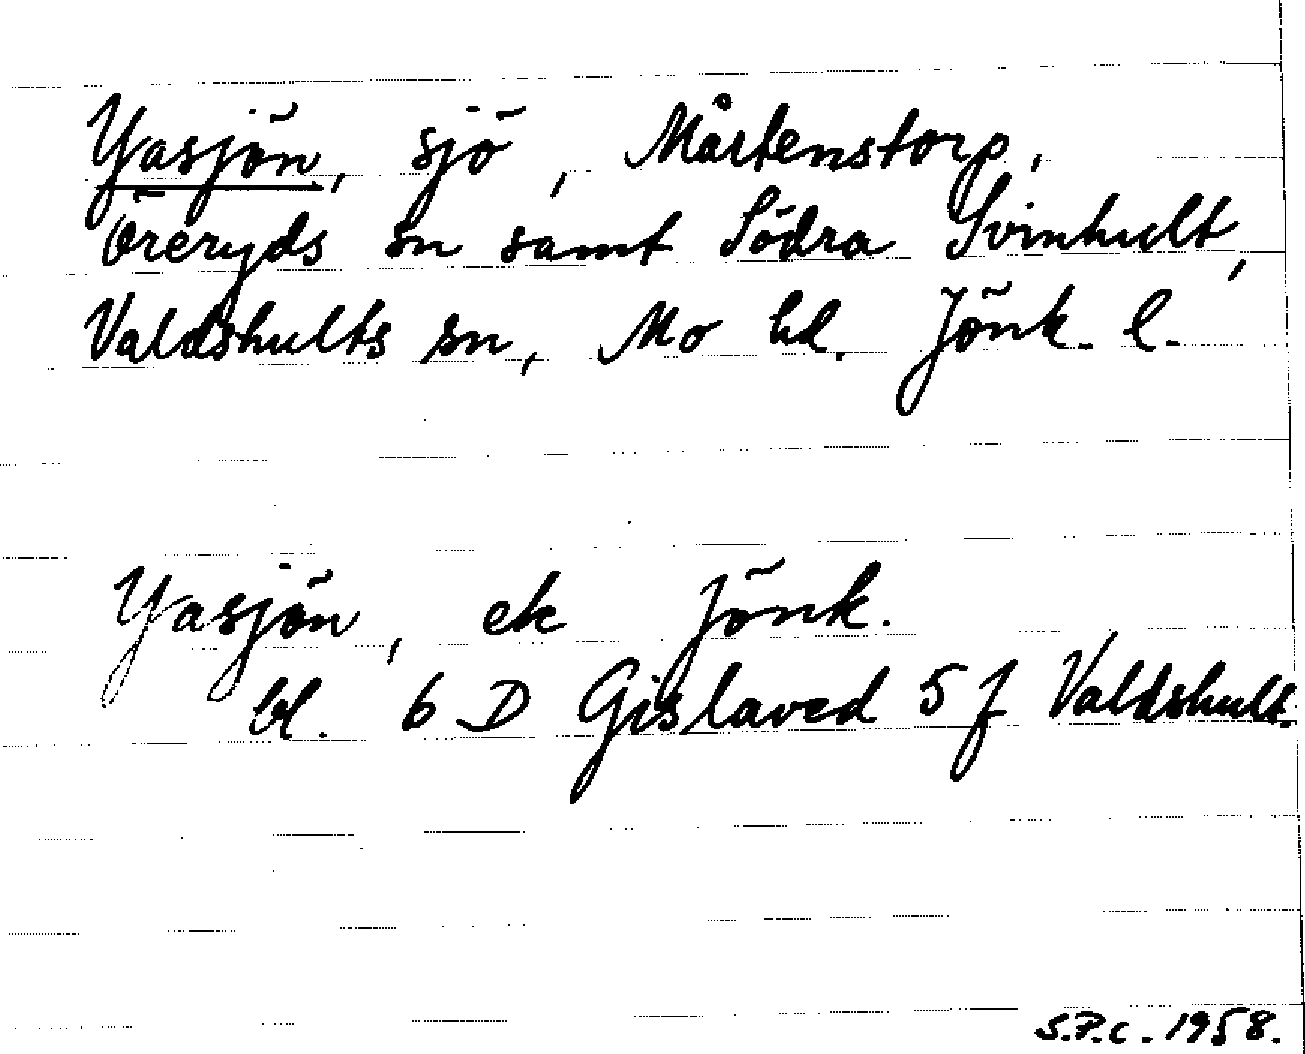 Yasjön, sjö, Mårtenstorp,
Öreryds sn samt Södra Svinhult,
Valdshults sn, Mo hd. Jönk. l.
Yasjön, ek Jönk.
bl. 6 D Gislaved 5 f Valdshult.
S.P.C. 1958.